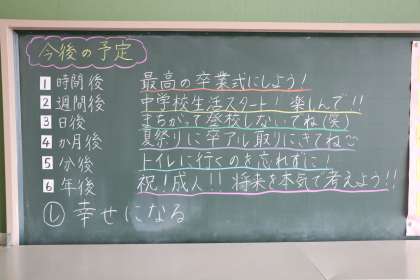 今後の予定
1 時間後 最高の卒業式にしよう!
2 週間後 中学校生活スタート! 楽しんで!!
3 日後 まちがって登校しないでね(笑)
4 か月後 夏祭りに卒アル取りにきてねご
5 分後 トイレに行くのを忘れずに!
6 年後 祝!成人!! 将来を本気で考えよう!!
し 幸せになる